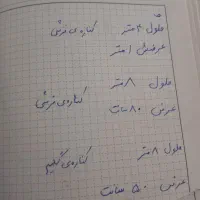 طول ۴ متر کناره‌ی فرشی
عرضش ۱ متر
طول ۸ متر
کناره‌ی فرشی
عرض ۸۰ سانت
طول ۸ متر
کناره‌ی گلیم
عرض ۵۰ سانت